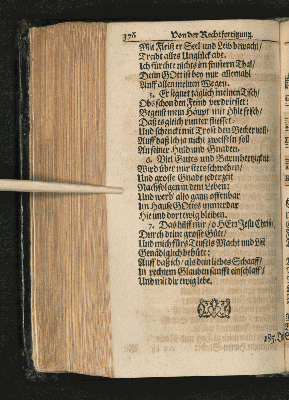 376 Von der Rechtfertigung.
Mit Fleiß er Seel und Leib bewacht/
Treibt alles Unglück abe.
Ich fürchte nichts im finstern Thal/
Dein GOtt ist bey mir allemahl
Auff allen meinen Wegen.
5. Er segnet täglich meinen Tisch/
Ob schon den Feind verdriesset:
Begeust mein Häupt mit Öhle frisch/
Daß es gleich runter fliesset:
Und schenckt mit Trost den Becher voll/
Auff daß ich ja nicht zweifeln soll
An seiner Huld und Gnaden.
6. Viel Gutes und Barmhertzigkeit
Wird über mir stets schweben/
Und grosse Gnade jederzeit
Nachfolgen in dem Leben:
Und werd' also gantz offenbar
Im Hause GOttes immerdar
Hie und dort ewig bleiben.
7. Das hilff nur/ o HErr Jesu Christ/
Durch deine grosse Güte/
Und mich fürs Teufels Macht und List
Genädiglich behüte:
Auff daß ich/ als dein liebes Schaaff/
In rechtem Glauben sanfft einschlaff/
Und mit dir ewig lebe.
185.